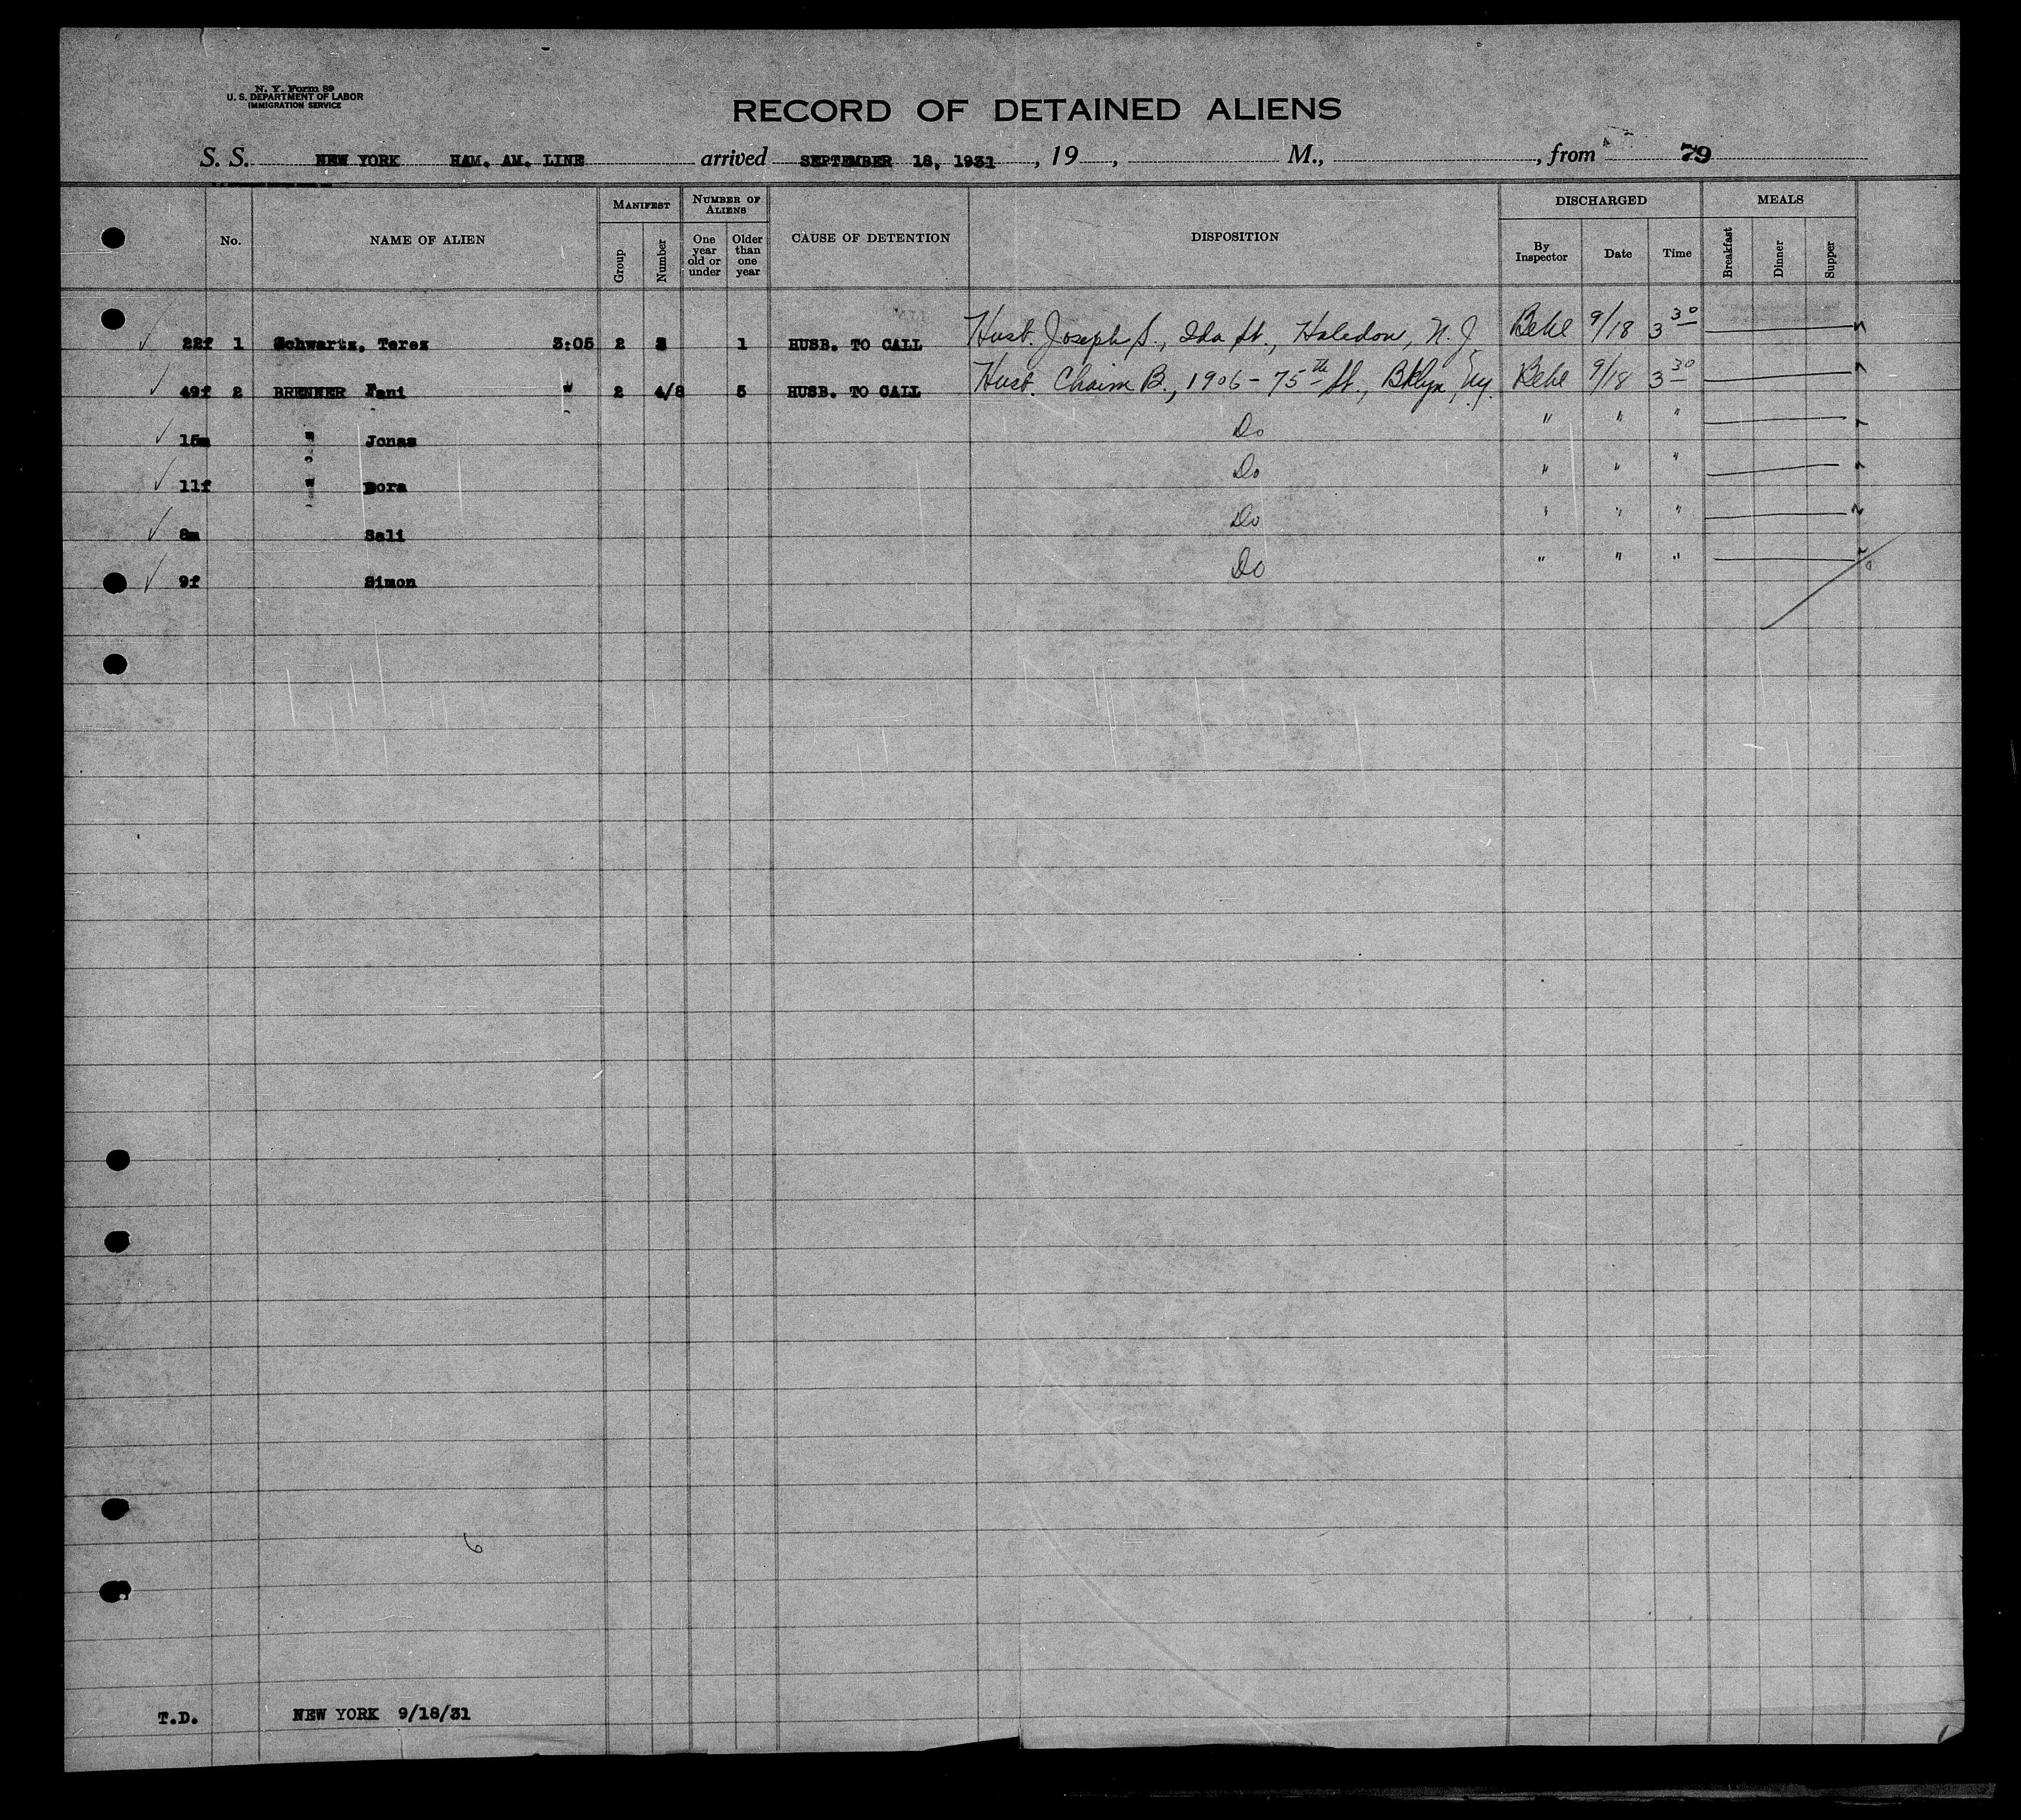 N. Y. Form 89
U. S. DEPARTMENT OF LABOR
IMMIGRATION SERVICE
RECORD OF DETAINED ALIENS
S. S. NEW YORK HAM. AM. LINE arrived SEPTEMBER 18, 1931, 19 , M., , from 79
No. NAME OF ALIEN MANIFEST Group Number NUMBER OF ALIENS One year old or under Older than one year CAUSE OF DETENTION DISPOSITION DISCHARGED By Inspector Date Time MEALS Breakfast Dinner Supper
22f 1 Schwartz, Terez 3:05 2 1 HUSB. TO CALL Husb. Joseph S., Ida St., Haledon, N. J. 9/18 3 30
49f 2 BRENNER Fani " 2 4/8 5 HUSB. TO CALL Husb. Chaim B., 1906 - 75th St., Bklyn, N.Y. 9/18 3 30
15m " Jonas Do " " "
11f " Dora Do " " "
8m Sali Do " " "
9f Simon Do " " "
6
T.D. NEW YORK 9/18/31